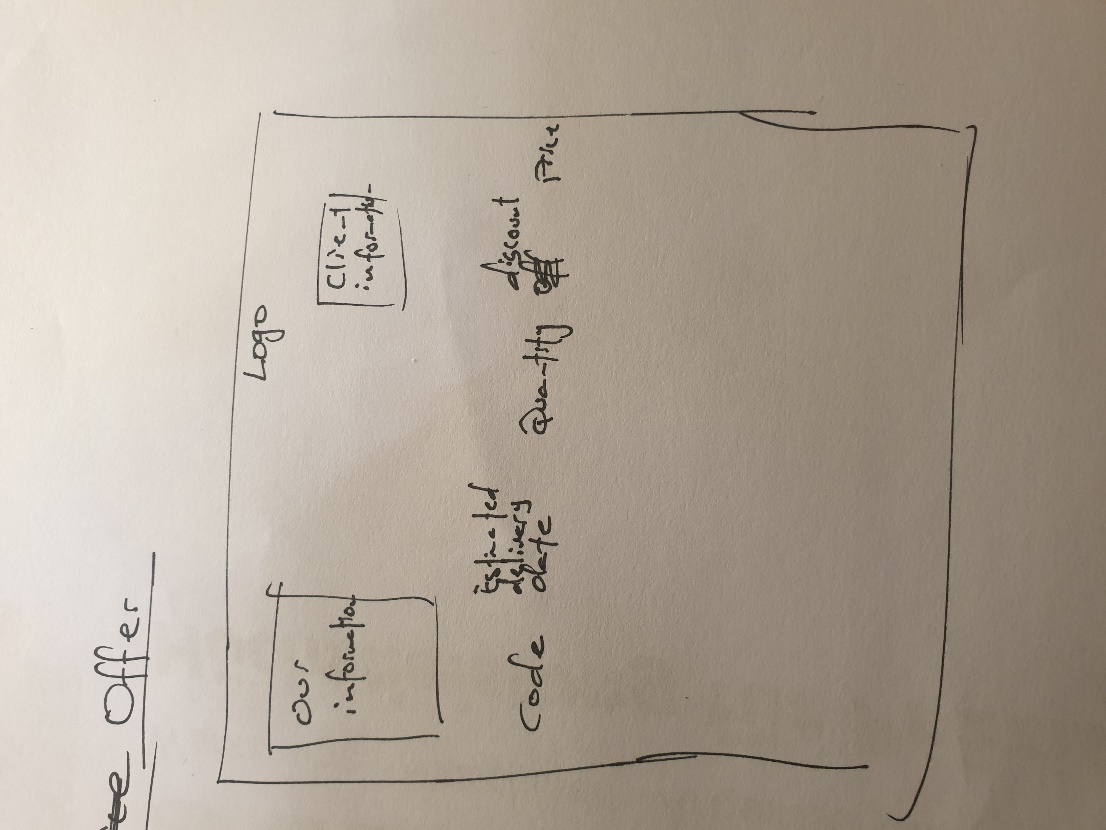 Offer
Logo
Our
information
Client
information
Code
Estimated
delivery
date
Quantity
discount
Price